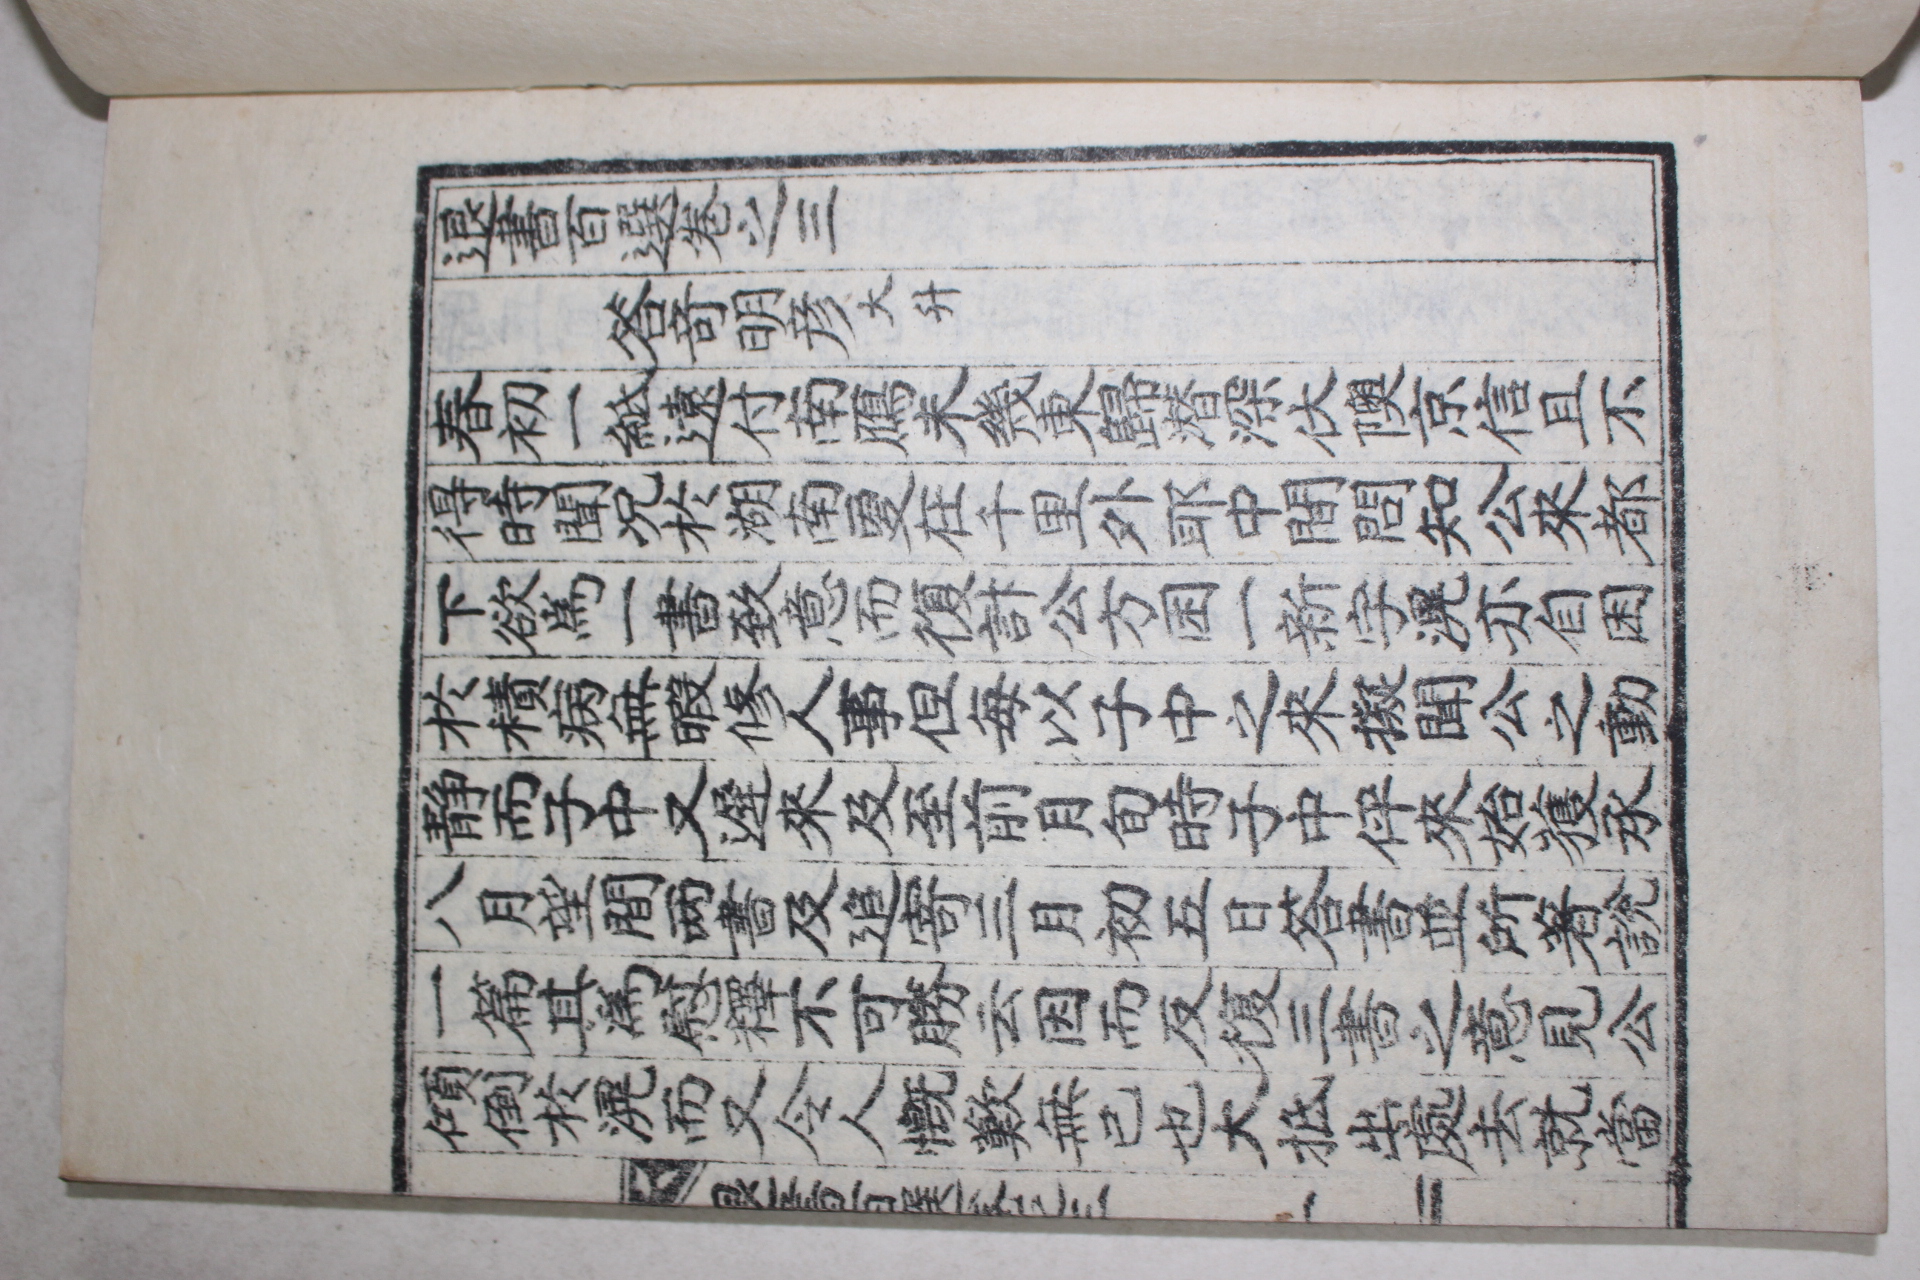 退書百選卷之三
答奇明彦大升
春初一紙遠付南鴈未幾東歸替深伏隩京信且不
得時聞況於湖南憂在千里外耶中間聞知公來都
下欲爲一書致意而復計公方困一新字滉亦自困
於積病無暇修人事但每以子中之來擬聞公之動
靜而子中又遲來及至前月旬時子中伻來始獲承
八月望間兩書及追寄三月初五日答書並所著說
一篇其爲慰釋不可勝云因而反復三書之意見公
傾倒於滉而又令人慨歎無已也大抵出處去就當
退書百選卷之三 一